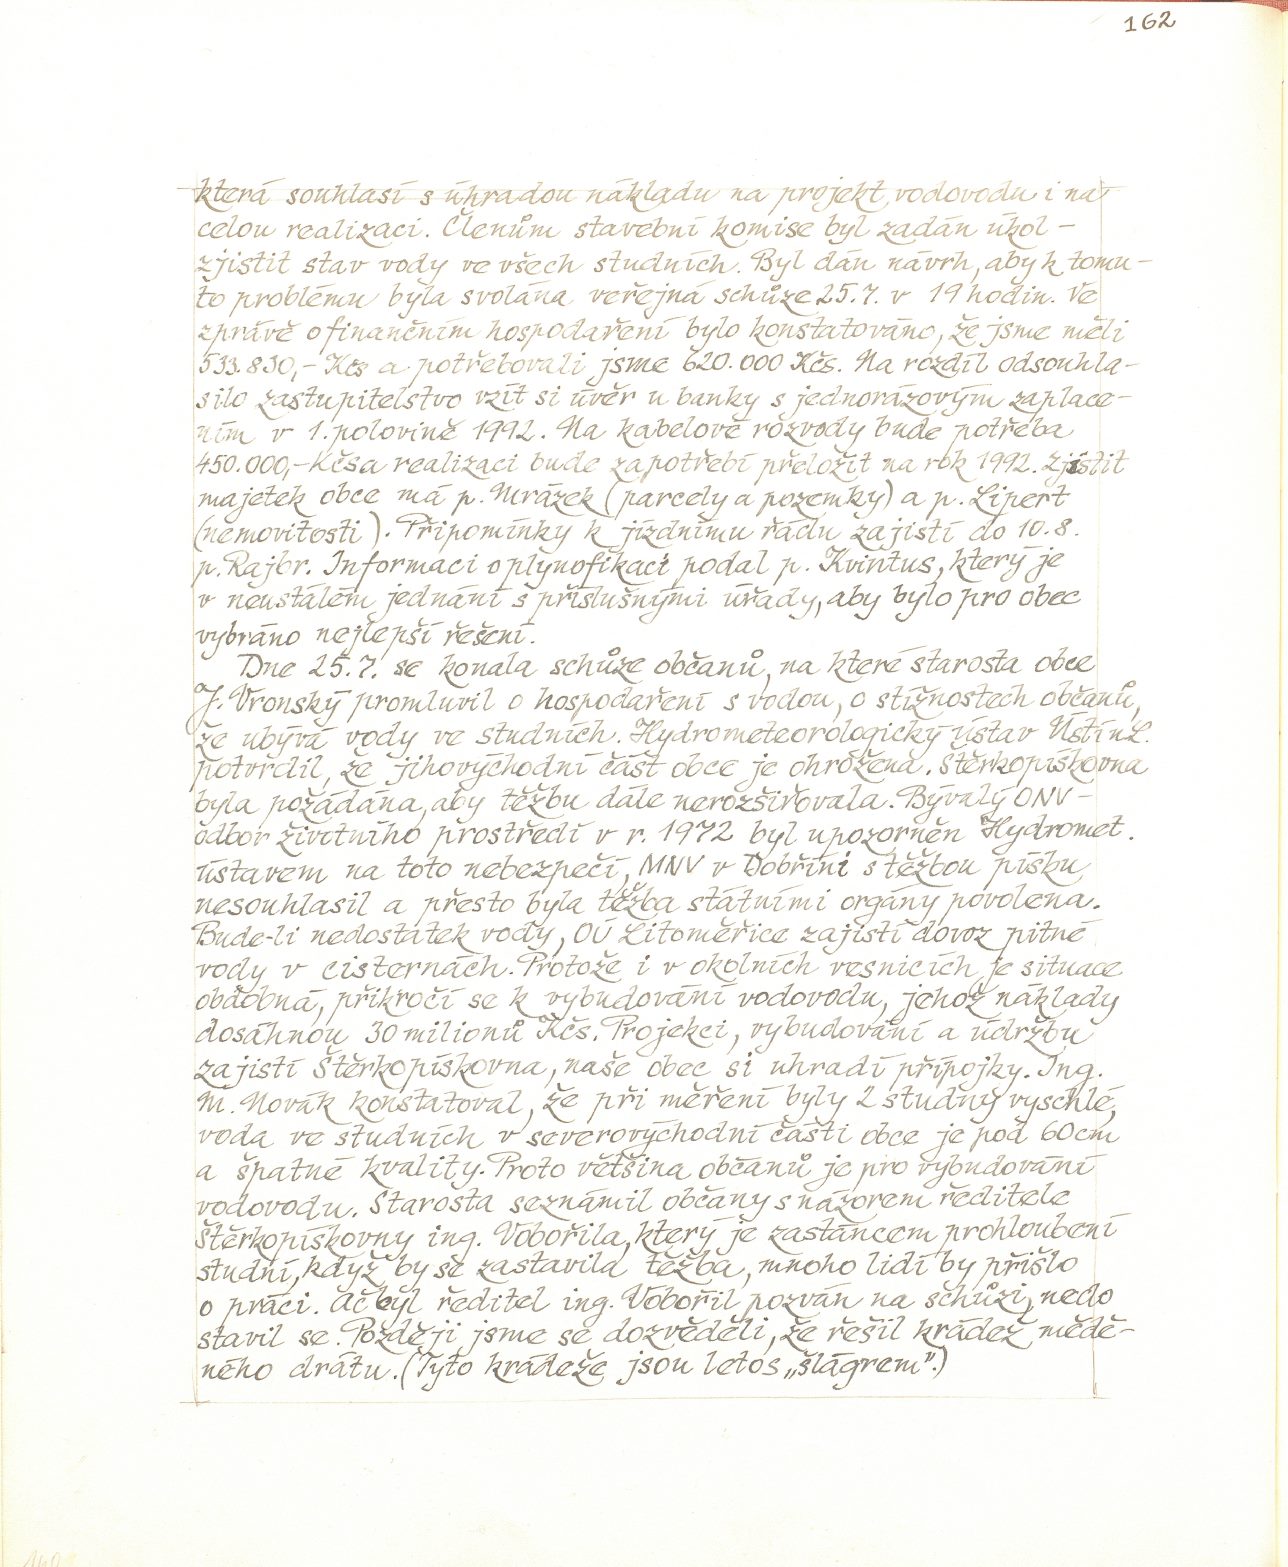 162
která souhlasí s úhradou nákladu na projekt vodovodu i na
celou realizaci. Členům stavební komise byl zadán úkol -
zjistit stav vody ve všech studních. Byl dán návrh, aby k tomu-
to problému byla svolána veřejná schůze 25.7. v 19 hodin. Ve
zprávě o finančním hospodaření bylo konstatováno, že jsme měli
533.830,- Kčs a potřebovali jsme 620.000 Kčs. Na rozdíl odsouhla-
silo zastupitelstvo vzít si úvěr u banky s jednorázovým zaplace-
ním v 1. polovině 1992. Na kabelové rozvody bude potřeba
450.000,- Kčs a realizaci bude zapotřebí přeložit na rok 1992. Zjistit
majetek obce má p. Mrázek (parcely a pozemky) a p. Lipert
(nemovitosti). Připomínky k jízdnímu řádu zajistí do 10.8.
p. Rajbr. Informaci o plynofikaci podal p. Kvintus, který je
v neustálém jednání s příslušnými úřady, aby bylo pro obec
vybráno nejlepší řešení.
Dne 25.7. se konala schůze občanů, na které starosta obce
J. Vronský promluvil o hospodaření s vodou, o stížnostech občanů,
že ubývá vody ve studních. Hydrometeorologický ústav Ústí n L.
potvrdil, že jihovýchodní část obce je ohrožena. Štěrkopískovna
byla požádána, aby těžbu dále nerozšiřovala. Bývalý ONV -
odbor životního prostředí v r. 1972 byl upozorněn Hydromet.
ústavem na toto nebezpečí, MNV v Dobříni s těžbou písku
nesouhlasil a přesto byla těžba státními orgány povolena.
Bude-li nedostatek vody, OÚ Litoměřice zajistí dovoz pitné
vody v cisternách. Protože i v okolních vesnicích je situace
obdobná, přikročí se k vybudování vodovodu, jehož náklady
dosáhnou 30 milionů Kčs. Projekci, vybudování a údržbu
zajistí Štěrkopískovna, naše obec si uhradí přípojky. Ing.
M. Novák konstatoval, že při měření byly 2 studny vyschlé,
voda ve studních v severovýchodní části obce je pod 60 cm
a špatné kvality. Proto většina občanů je pro vybudování
vodovodu. Starosta seznámil občany s názorem ředitele
štěrkopískovny ing. Vobořila, který je zastáncem prohloubení
studní, když by se zastavila těžba, mnoho lidí by přišlo
o práci. Ač byl ředitel ing. Vobořil pozván na schůzi, nedo
stavil se. Později jsme se dozvěděli, že řešil krádež mědě-
ného drátu. (Tyto krádeže jsou letos „šlágrem".)